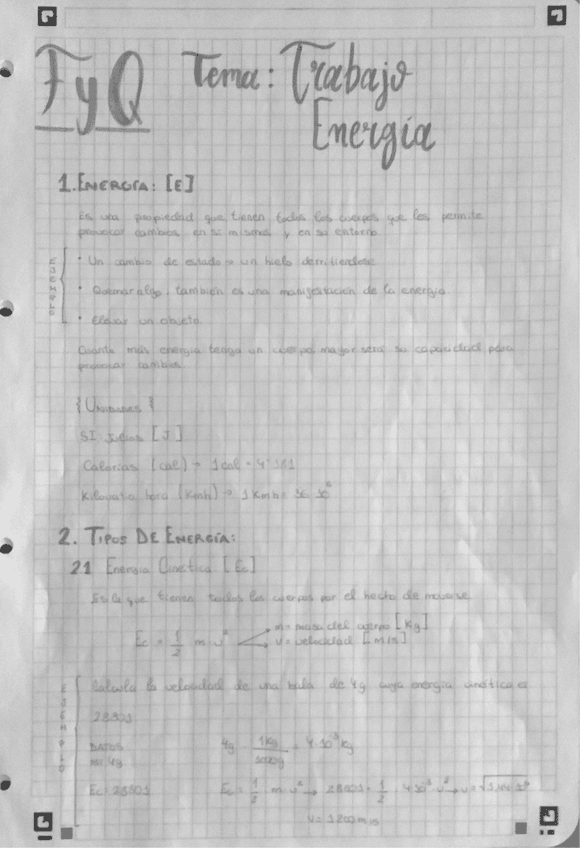 FyQ Tema: Trabajo
Energía
1. ENERGÍA: [E]
Es una propiedad que tienen todos los cuerpos que les permite
provocar cambios en si mismos y en su entorno.
EJEMPLO
· Un cambio de estado → un hielo derritiendose
· Quemar algo, también es una manifestación de la energía.
· Elevar un objeto.
Cuanta más energía tenga un cuerpo mayor será su capacidad para
provocar cambios.
{ UNIDADES }
SI Julios [J]
Calorías [cal] → 1 cal =
Kilovatio hora [Kwh] → 1 Kwh =
2. TIPOS DE ENERGÍA:
2.1 Energía Cinética [Ec]
Es la que tienen todos los cuerpos por el hecho de moverse
Ec = 1/2 m v² m = masa del cuerpo [Kg]
v = velocidad [m/s]
EJEMPLO
Calcula la velocidad de una bala de 4g cuya energía cinética es
2880J
DATOS 4g · 1Kg/1000g = 4·10⁻³ Kg
m = 4g
Ec = 2880J Ec = 1/2 m v² → 2880J = 1/2 · 4·10⁻³ v² → v =
v = 1200 m/s